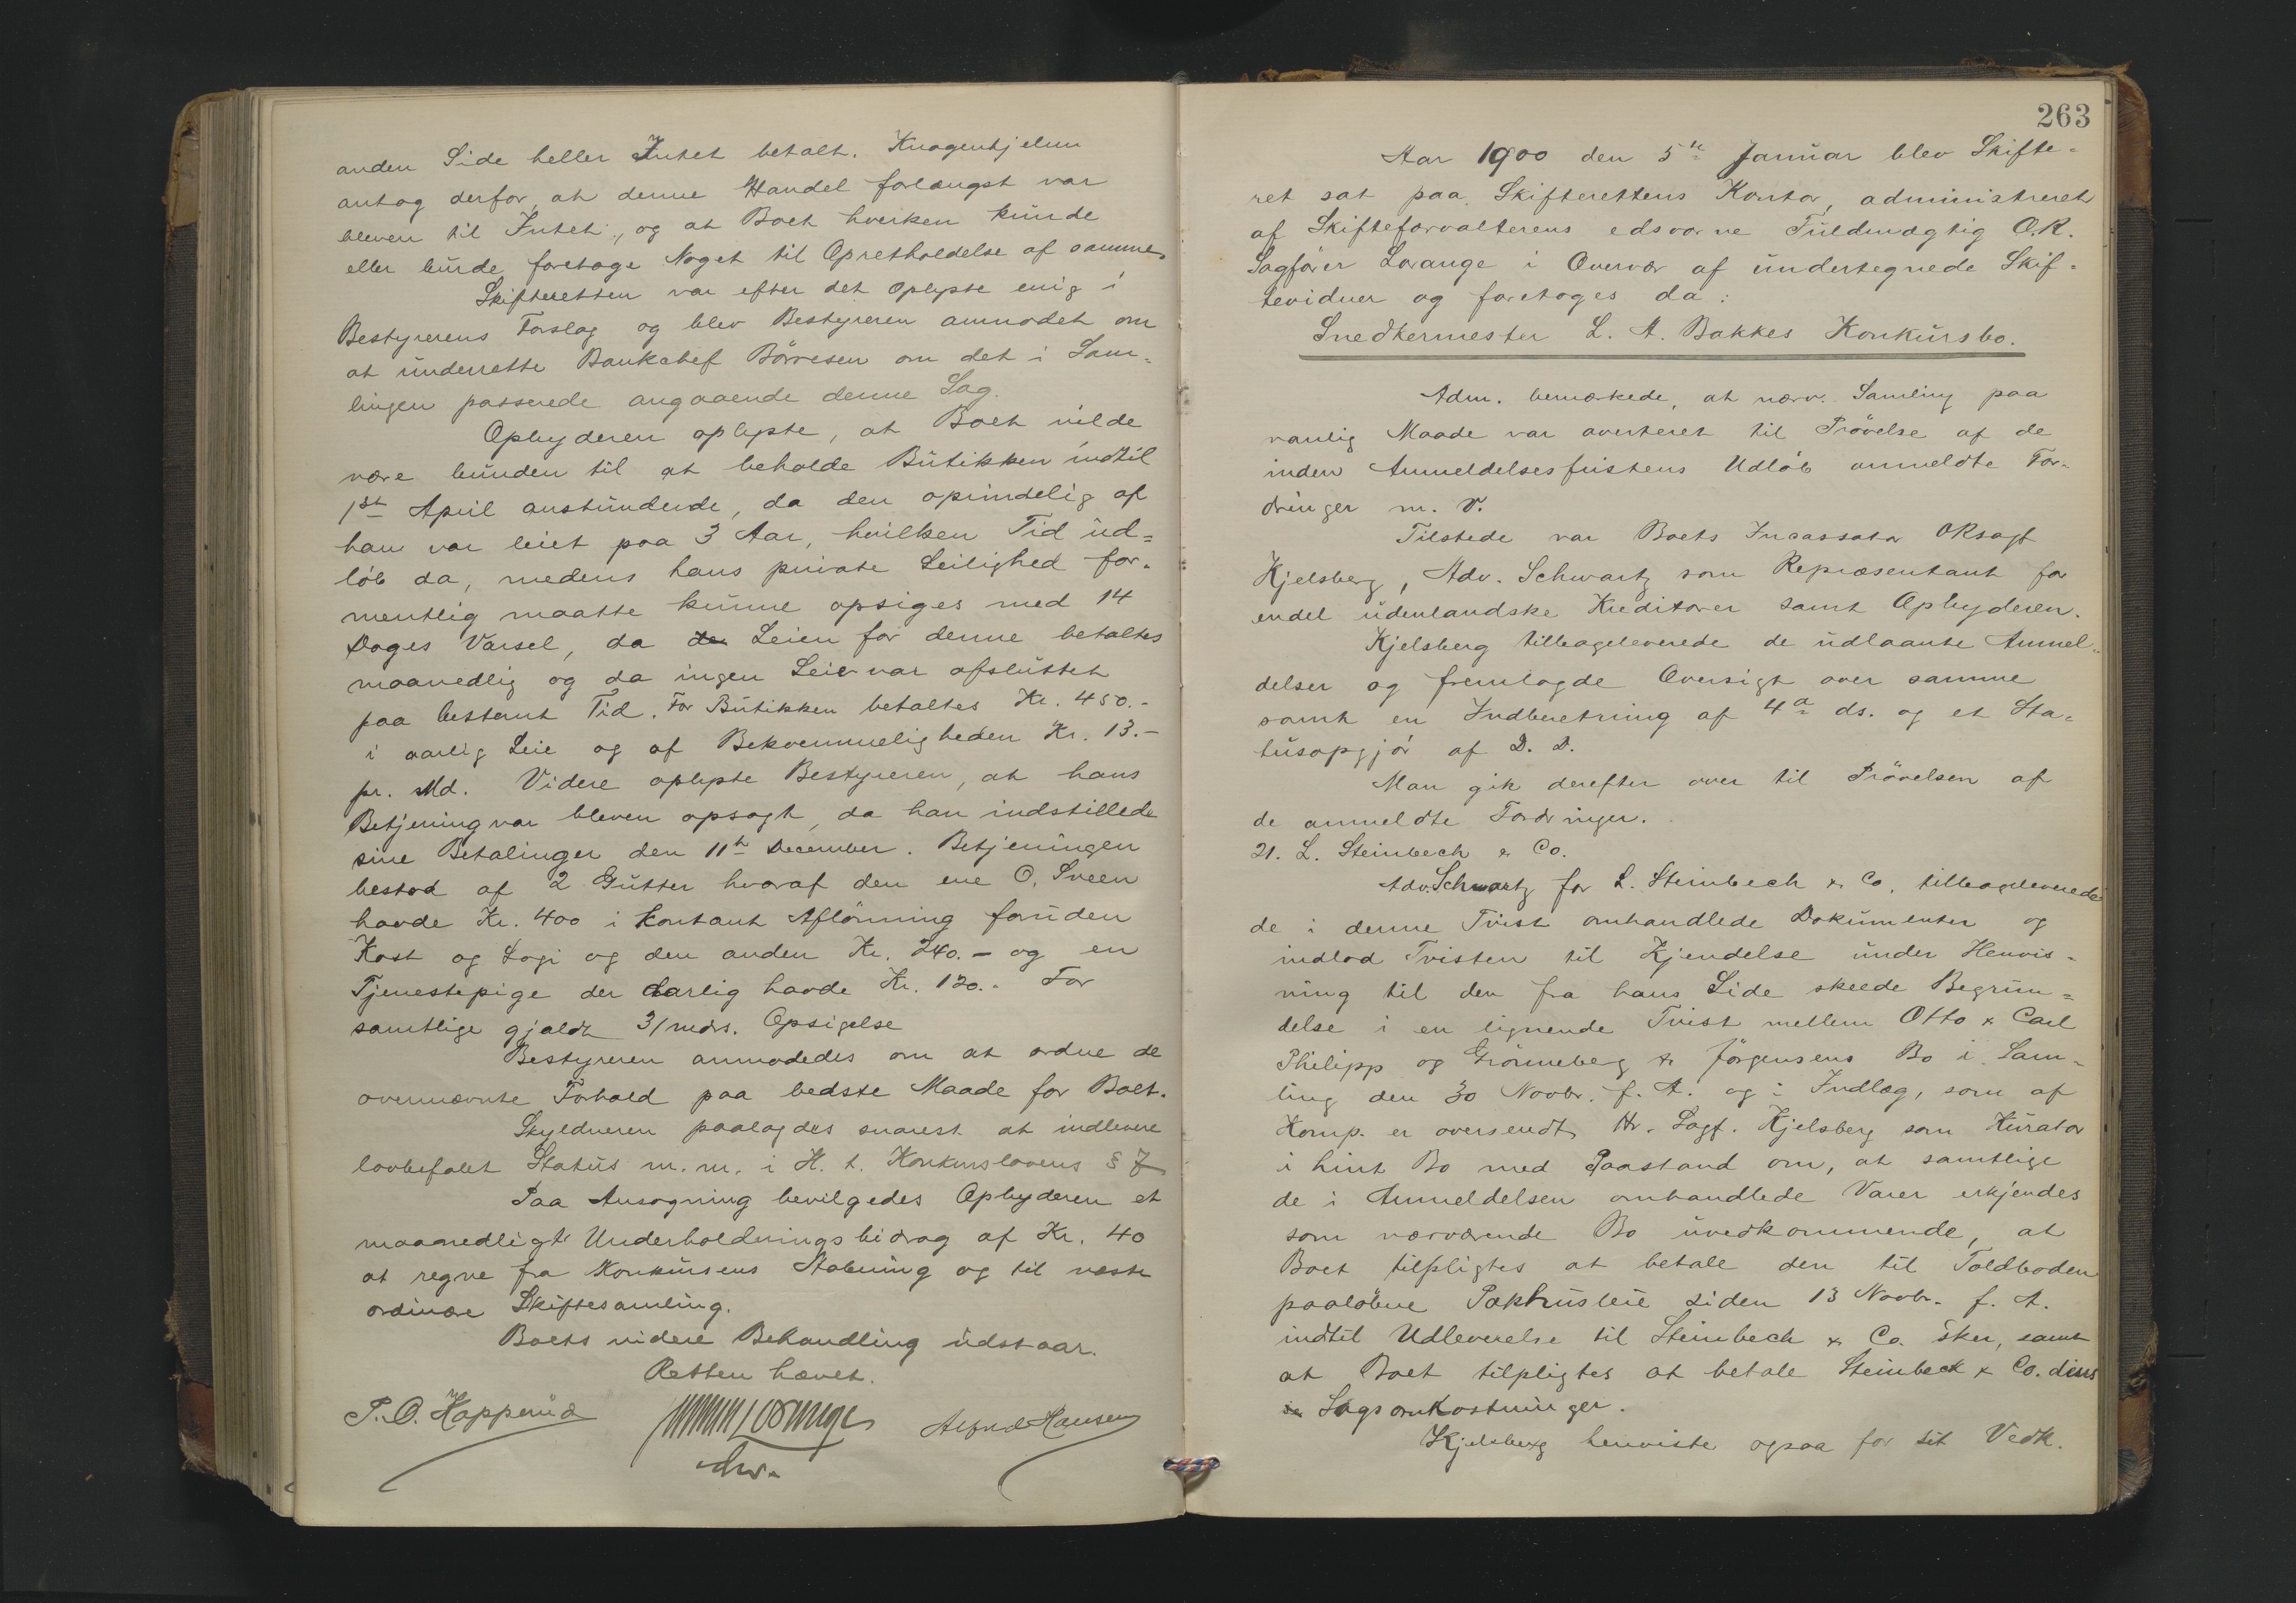 anden Side heller Intet betalt. Knagenhjelm
antog derfor, at denne Handel forlængst var
bleven til Intet, og at Boet hverken kunde
eller burde foretage Noget til Opretholdelse af samme.
Skifteretten var efter det oplyste enig i
Bestyrerens Forslag og blev Bestyreren anmodet om
at underrette Bankchef Börresen om det i Sam-
lingen passerede angaaende denne Sag.
Opbyderen oplyste, at Boet vilde
være bunden til at beholde Butikken indtil
1ste April anstundende, da den oprindelig af
ham var leiet paa 3 Aar, hvilken Tid ud-
löb da, medens hans private Leilighed for-
mentlig maatte kunne opsiges med 14
Dages Varsel, da Leien for denne betaltes
maanedlig og da ingen Leie var afsluttet
paa bestemt Tid. For Butikken betaltes Kr. 450.-
i aarlig Leie og af Bekvemmeligheden Kr. 13.-
pr. Md. Videre oplyste Bestyreren, at hans
Betjening var bleven opsagt, da han indstillede
sine Betalinger den 11te December. Betjeningen
bestod af 2 Gutter hvoraf den ene O. Sveen
havde Kr. 400 i kontant Aflönning foruden
Kost og Logi og den anden Kr. 240.- og en
Tjenestepige der aarlig havde Kr. 120.- For
samtlige gjaldt 3/mdrs. Opsigelse
Bestyreren anmodedes om at ordne de
ovennævnte Forhold paa bedste Maade for Boet.
Skyldneren paalagdes snarest at indlevere
lovbefalet Status m. m. i H. t. Konkurslovens § 7
Paa Ansøgning bevilgedes Opbyderen et
maanedligt Underholdningsbidrag af Kr. 40
at regne fra Konkursens Aabning og til næste
ordinære Skiftesamling.
Boets videre Behandling udstaar.
Retten hævet.
P. O. Kapperud Lorange Alfred Hansen
263
Aar 1900 den 5te Januar blev Skifte-
ret sat paa Skifterettens Kontor, administreret
af Skifteforvalterens edsvorne Fuldmægtig O.R.
Sagförer Lorange i Overvær af undertegnede Skif-
tevidner og foretoges da:
Snedkermester L. A. Bakkes Konkursbo.
Adm. bemærkede, at nærv. Samling paa
vanlig Maade var averteret til Prövelse af de
inden Anmeldelsesfristens Udlöb anmeldte For-
dringer m. V.
Tilstede var Boets Incassator ORsagf
Kjelsberg, Adv. Schwartz som Repræsentant for
endel udenlandske Kreditorer samt Opbyderen.
Kjelsberg tilbageleverede de udlaante Anmel-
delser og fremlagde Oversigt over samme
samt en Indberetning af 4de ds. og et Sta-
tusopgjör af D. D.
Man gik derefter over til Prövelsen af
de anmeldte Fordringer.
21. L. Steinbech & Co.
Adv. Schwartz for L. Steinbech & Co. tilbageleverede
de i denne Tvist omhandlede Dokumenter og
indlod Tvisten til Kjendelse under Henvis-
ning til den fra hans Side skeede Begrun-
delse i en lignende Tvist mellem Otto & Carl
Philipp og Grönneberg & Jörgensens Bo i Sam-
ling den 30 Novbr. f. A. og i Indlæg, som af
Komp. er oversendt Hr. Sagf. Kjelsberg som Kurator
i hint Bo med Paastand om, at samtlige
de i Anmeldelsen omhandlede Varer erkjendes
som nærværende Bo uvedkommende, at
Boet tilpligtes at betale den til Toldboden
paalöbne Pakhusleie siden 13 Novbr. f. A.
indtil Udleverelse til Steinbech & Co. sker, samt
at Boet tilpligtes at betale Steinbeck & Co. dens
Sagsomkostninger.
Kjelsberg henviste ogsaa for sit Vedk.